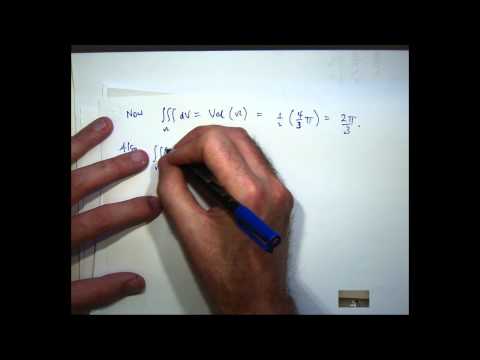 Now ∭_Ω dV = Vol (Ω) = 1/2 (4/3 π) = 2π/3 .
Also ∭